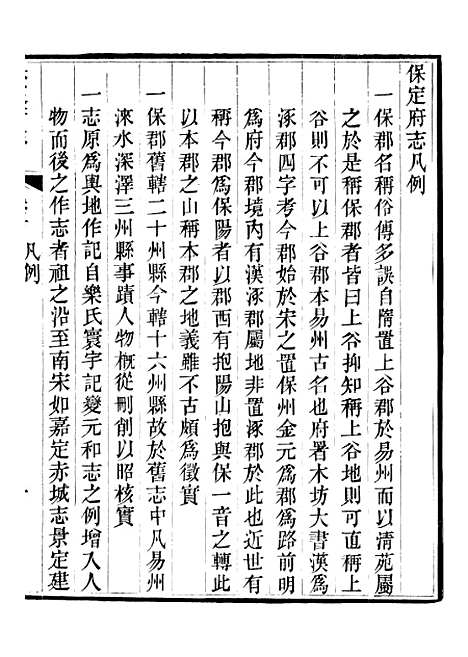 保定府志凡例
一保郡名稱俗傳多誤自隋置上谷郡於易州而以清苑屬
之於是稱保郡者皆曰上谷抑知稱上谷地則可直稱上
谷則不可以上谷郡本易州古名也府署木坊大書漢爲
涿郡四字考今郡始於宋之置保州金元爲郡爲路前明
爲府今郡境內有漢涿郡屬地非置涿郡於此也近世有
稱今郡爲保陽者以郡西有抱陽山抱與保一音之轉此
以本郡之山稱本郡之地義雖不古頗爲徵實
一保郡舊轄二十州縣今轄十六州縣故於舊志中凡易州
淶水深澤三州縣事蹟人物槪從刪創以昭核實
一志原爲輿地作記自樂氏寰宇記變元和志之例增入人
物而後之作志者祖之沿至南宋如嘉定赤城志景定建
凡例
一